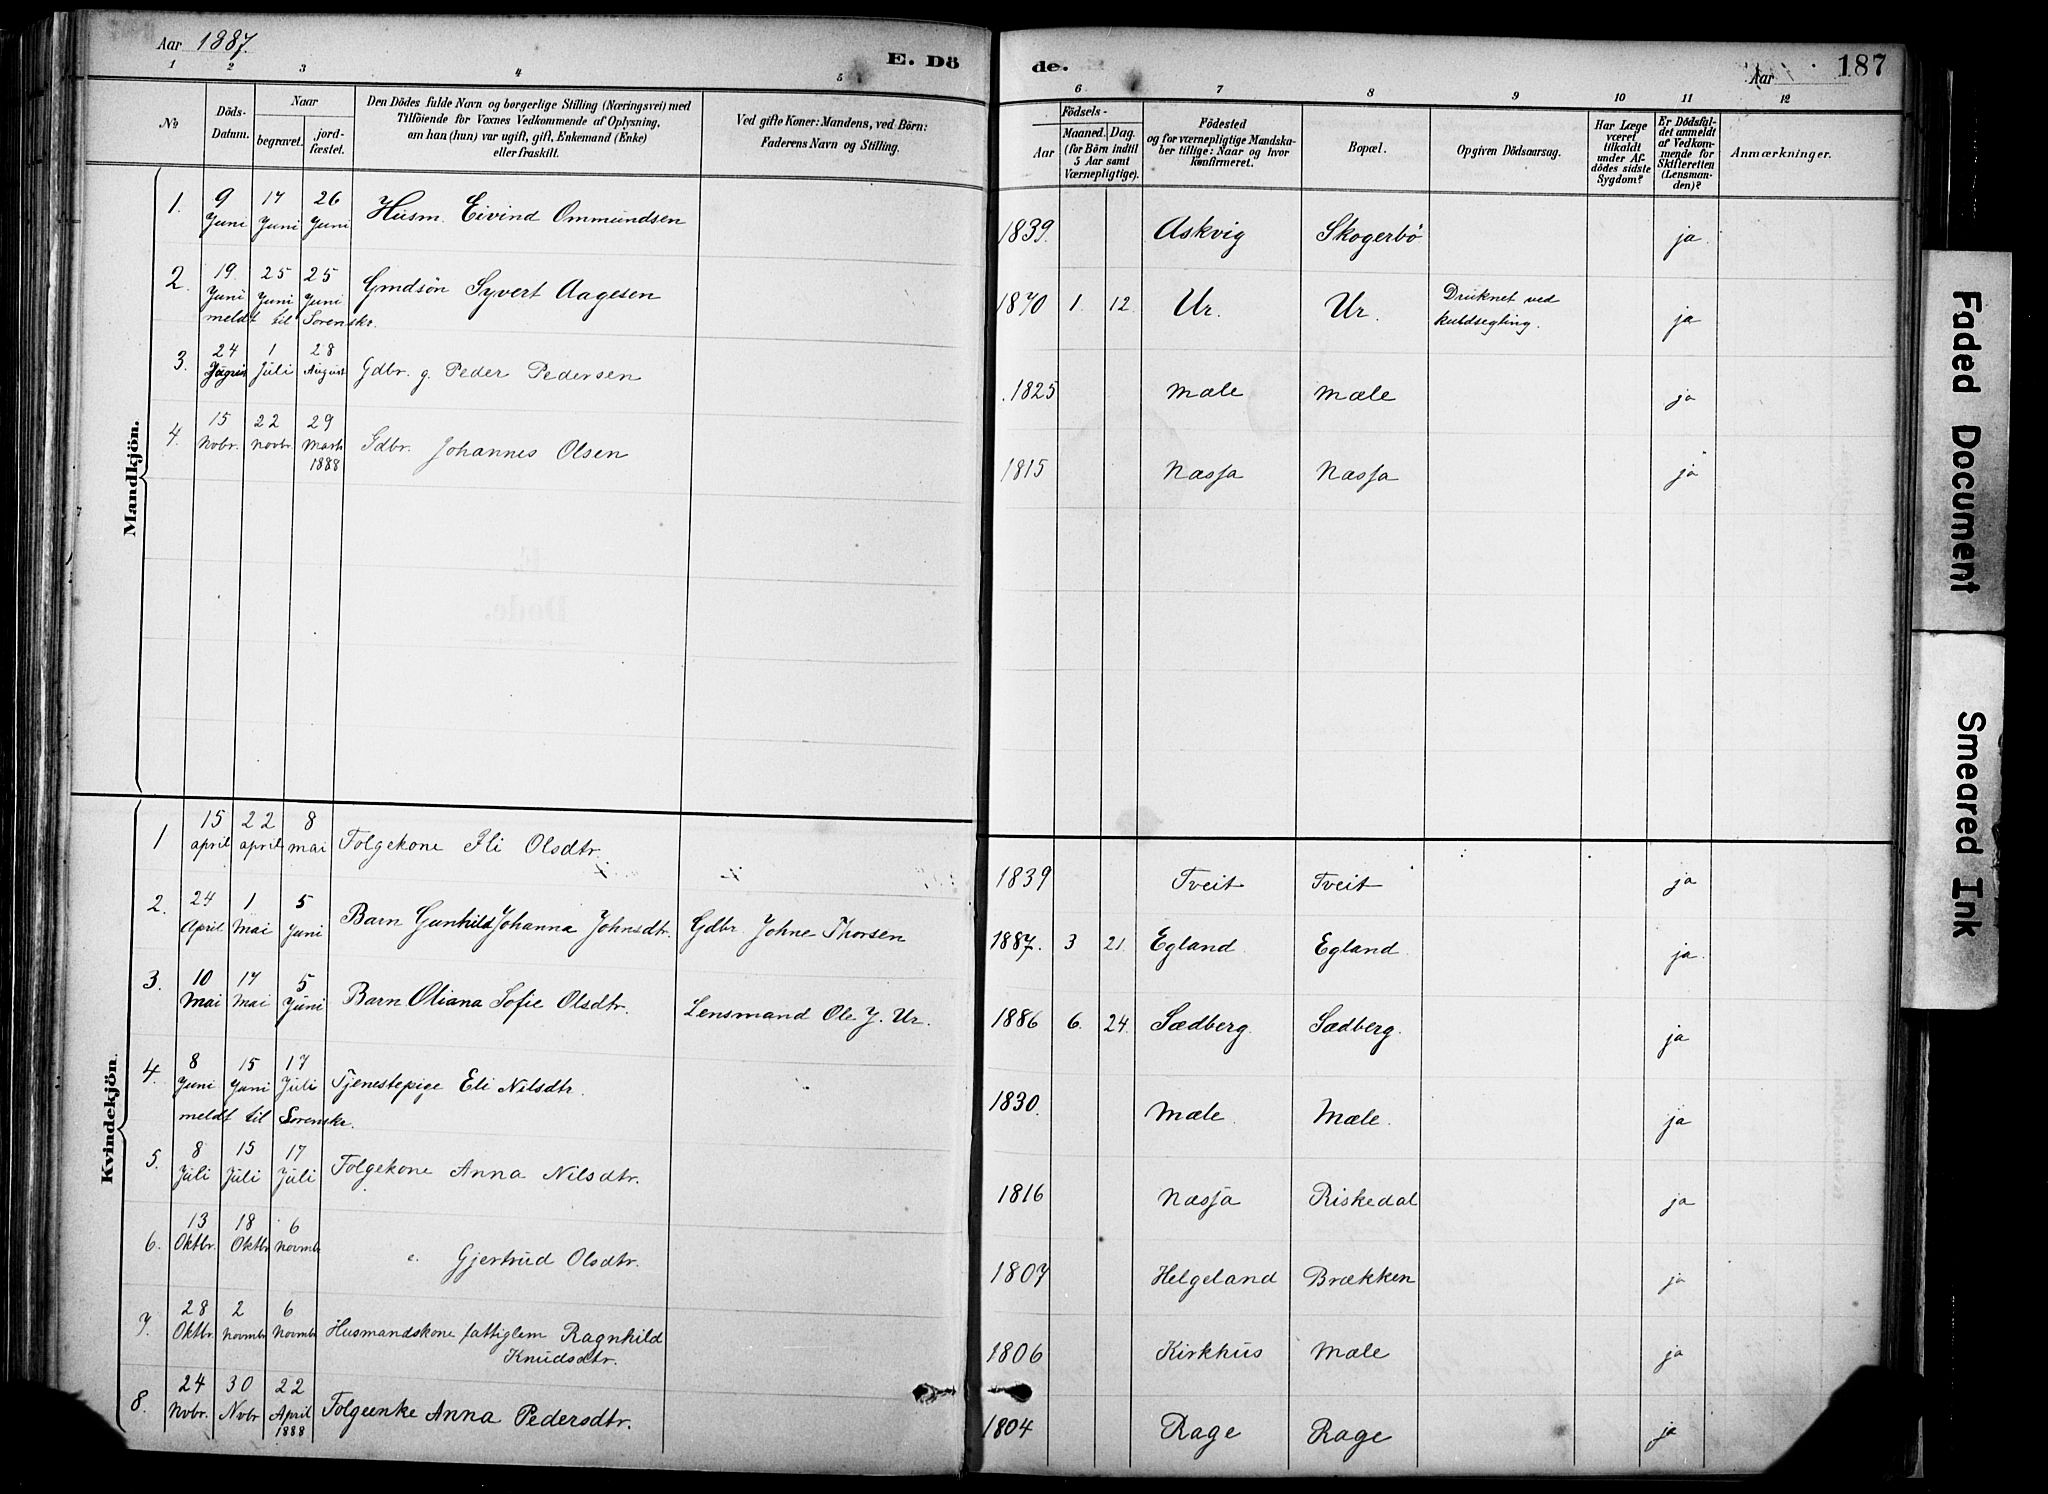 Aar 1887.
E. Dö
de.
Aar
187
1 2 3 4 5
6 7 8 9 10 11 12
№
Döds-Datum.
Naar
begravet.
jord-fæstet.
Den Dödes fulde Navn og borgerlige Stilling (Næringsvei) med
Tilföiende for Voxnes Vedkommende af Oplysning,
om han (hun) var ugift, gift, Enkemand (Enke)
eller fraskilt.
Ved gifte Koner: Mandens, ved Börn:
Faderens Navn og Stilling.
Födsels-
Aar
Maaned. Dag.
(for Börn indtil
5 Aar samt
Værnepligtige).
Födested
og for værnepligtige Mandska-
ber tillige: Naar og hvor
konfirmeret.
Bopæl.
Opgiven Dödsaarsag.
Har Læge
været
tilkaldt
under Af-
dödes sidste
Sygdom?
Er Dödsfal-
det anmeldt
af Vedkom-
mende for
Skifteretten
(Lensman-
den)?
Anmærkninger.
Mandkjön.
1. 9 Juni 17 Juni 26 Juni Husm. Eivind Ommundsen 1839. Askvig Skogerbö ja.
2. 19. Juni 25 Juni 25 Juni Gmdsön Syvert Aagesen 1870 1. 12. Ur. Ur. Druknet ved
kuldsegling. ja
meldt til Sorenskr.
3. 24 1 Juli 28 August Gdbr. g. Peder Pedersen 1825 Mæle Mæle ja
4. 15 Novbr. 22 Novbr. 29 Marts 1888 Gdbr. Johannes Olsen 1815 Næsja Næsja ja
Kvindekjön.
1 15 april 22 april 8 mai Folgekone Eli Olsdtr. 1839 Tveit Tveit ja
2. 24 April 1 Mai 5 Juni Barn Gunhild Johanna Johnsdtr. Gdbr. Johne Thorsen 1887. 3 21. Egland. Egland. ja.
3. 10 Mai 17 Mai 5 Juni Barn Oliana Sofie Olsdtr. Lensmand Ole J. Ur. 1886 6. 24. Sædberg. Sædberg. ja
4. 8 Juni 15 Juni 17 Juli Tjenestepige Eli Nilsdtr. 1830. Mæle. Mæle. ja
meldt til Sorenskr.
5. 8 Juli 15 Juli 17 Juli Folgekone Anna Nilsdtr. 1816 Næsja Riskedal ja
6. 13 Oktbr. 18 Oktbr. 6 Novmbr. e. Gjertrud Olsdtr. 1807 Helgeland Brækken ja
7. 28 Oktbr. 2 Novmbr. 6 Novmbr. Husmandskone fattiglem Ragnhild
Knudsdtr. 1806 Kirkhus Mæle ja
8. 24 Nvbr. 30 Nvbr. 22 April 1888 Folgeenke Anna Pedersdtr. 1804 Rage Rage ja
Faded Document
Smeared Ink